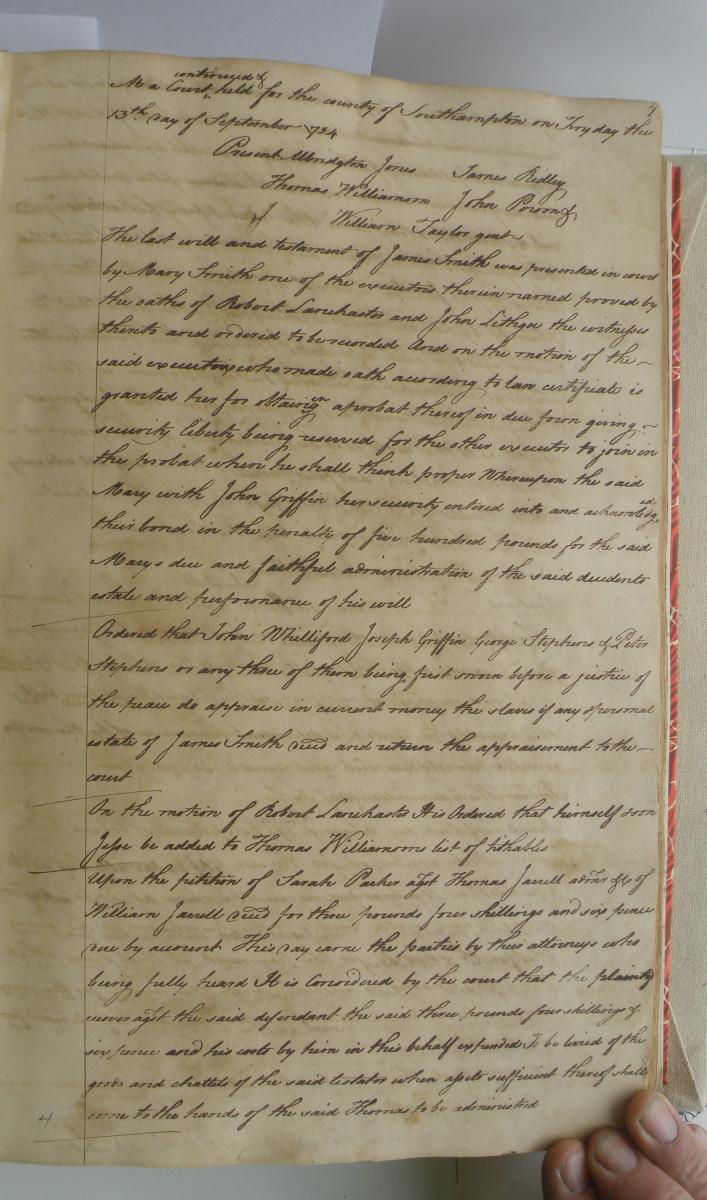 7
continued &
At a Court held for the county of Southampton on Fryday the
13th day of September 1754
Present Albridgton Jones James Ridley
Thomas Williamson John Person &
William Taylor gent
The last will and testament of James Smith was presented in court
by Mary Smith one of the executors therein named proved by
the oaths of Robert Lanchaster and John Lithgo the witnesses
thereto and ordered to be recorded And on the motion of the
said executrix who made oath according to law certificate is
granted her for obtaining a probat thereof in due form giving
security liberty being reserved for the other executor to join in
the probat where he shall think proper Whereupon the said
Mary with John Griffin her security entered into and acknowledged
their bond in the penalty of five hundred pounds for the said
Marys due and faithful administration of the said decedents
estate and performance of his will
Ordered that John Whelliford Joseph Griffin George Stephens & Peter
Stephens or any three of them being first sworn before a justice of
the peace do appraise in current money the slaves if any & personal
estate of James Smith deced and return the appraisement to the
court
On the motion of Robert Lanchaster It is Ordered that himself & son
Jesse be added to Thomas Williamsons list of tithables
Upon the petition of Sarah Parker agst Thomas Jarrell admr &c of
William Jarrell deced for three pounds four shillings and six pence
due by account This day came the parties by their attorneys who
being fully heard It is Considered by the court that the plaintif
recover agst the said defendant the said three pounds four shillings &
six pence and his costs by him in this behalf expended To be levied of the
goods and chattels of the said testator when assets sufficient thereof shall
come to the hands of the said Thomas to be administred
4